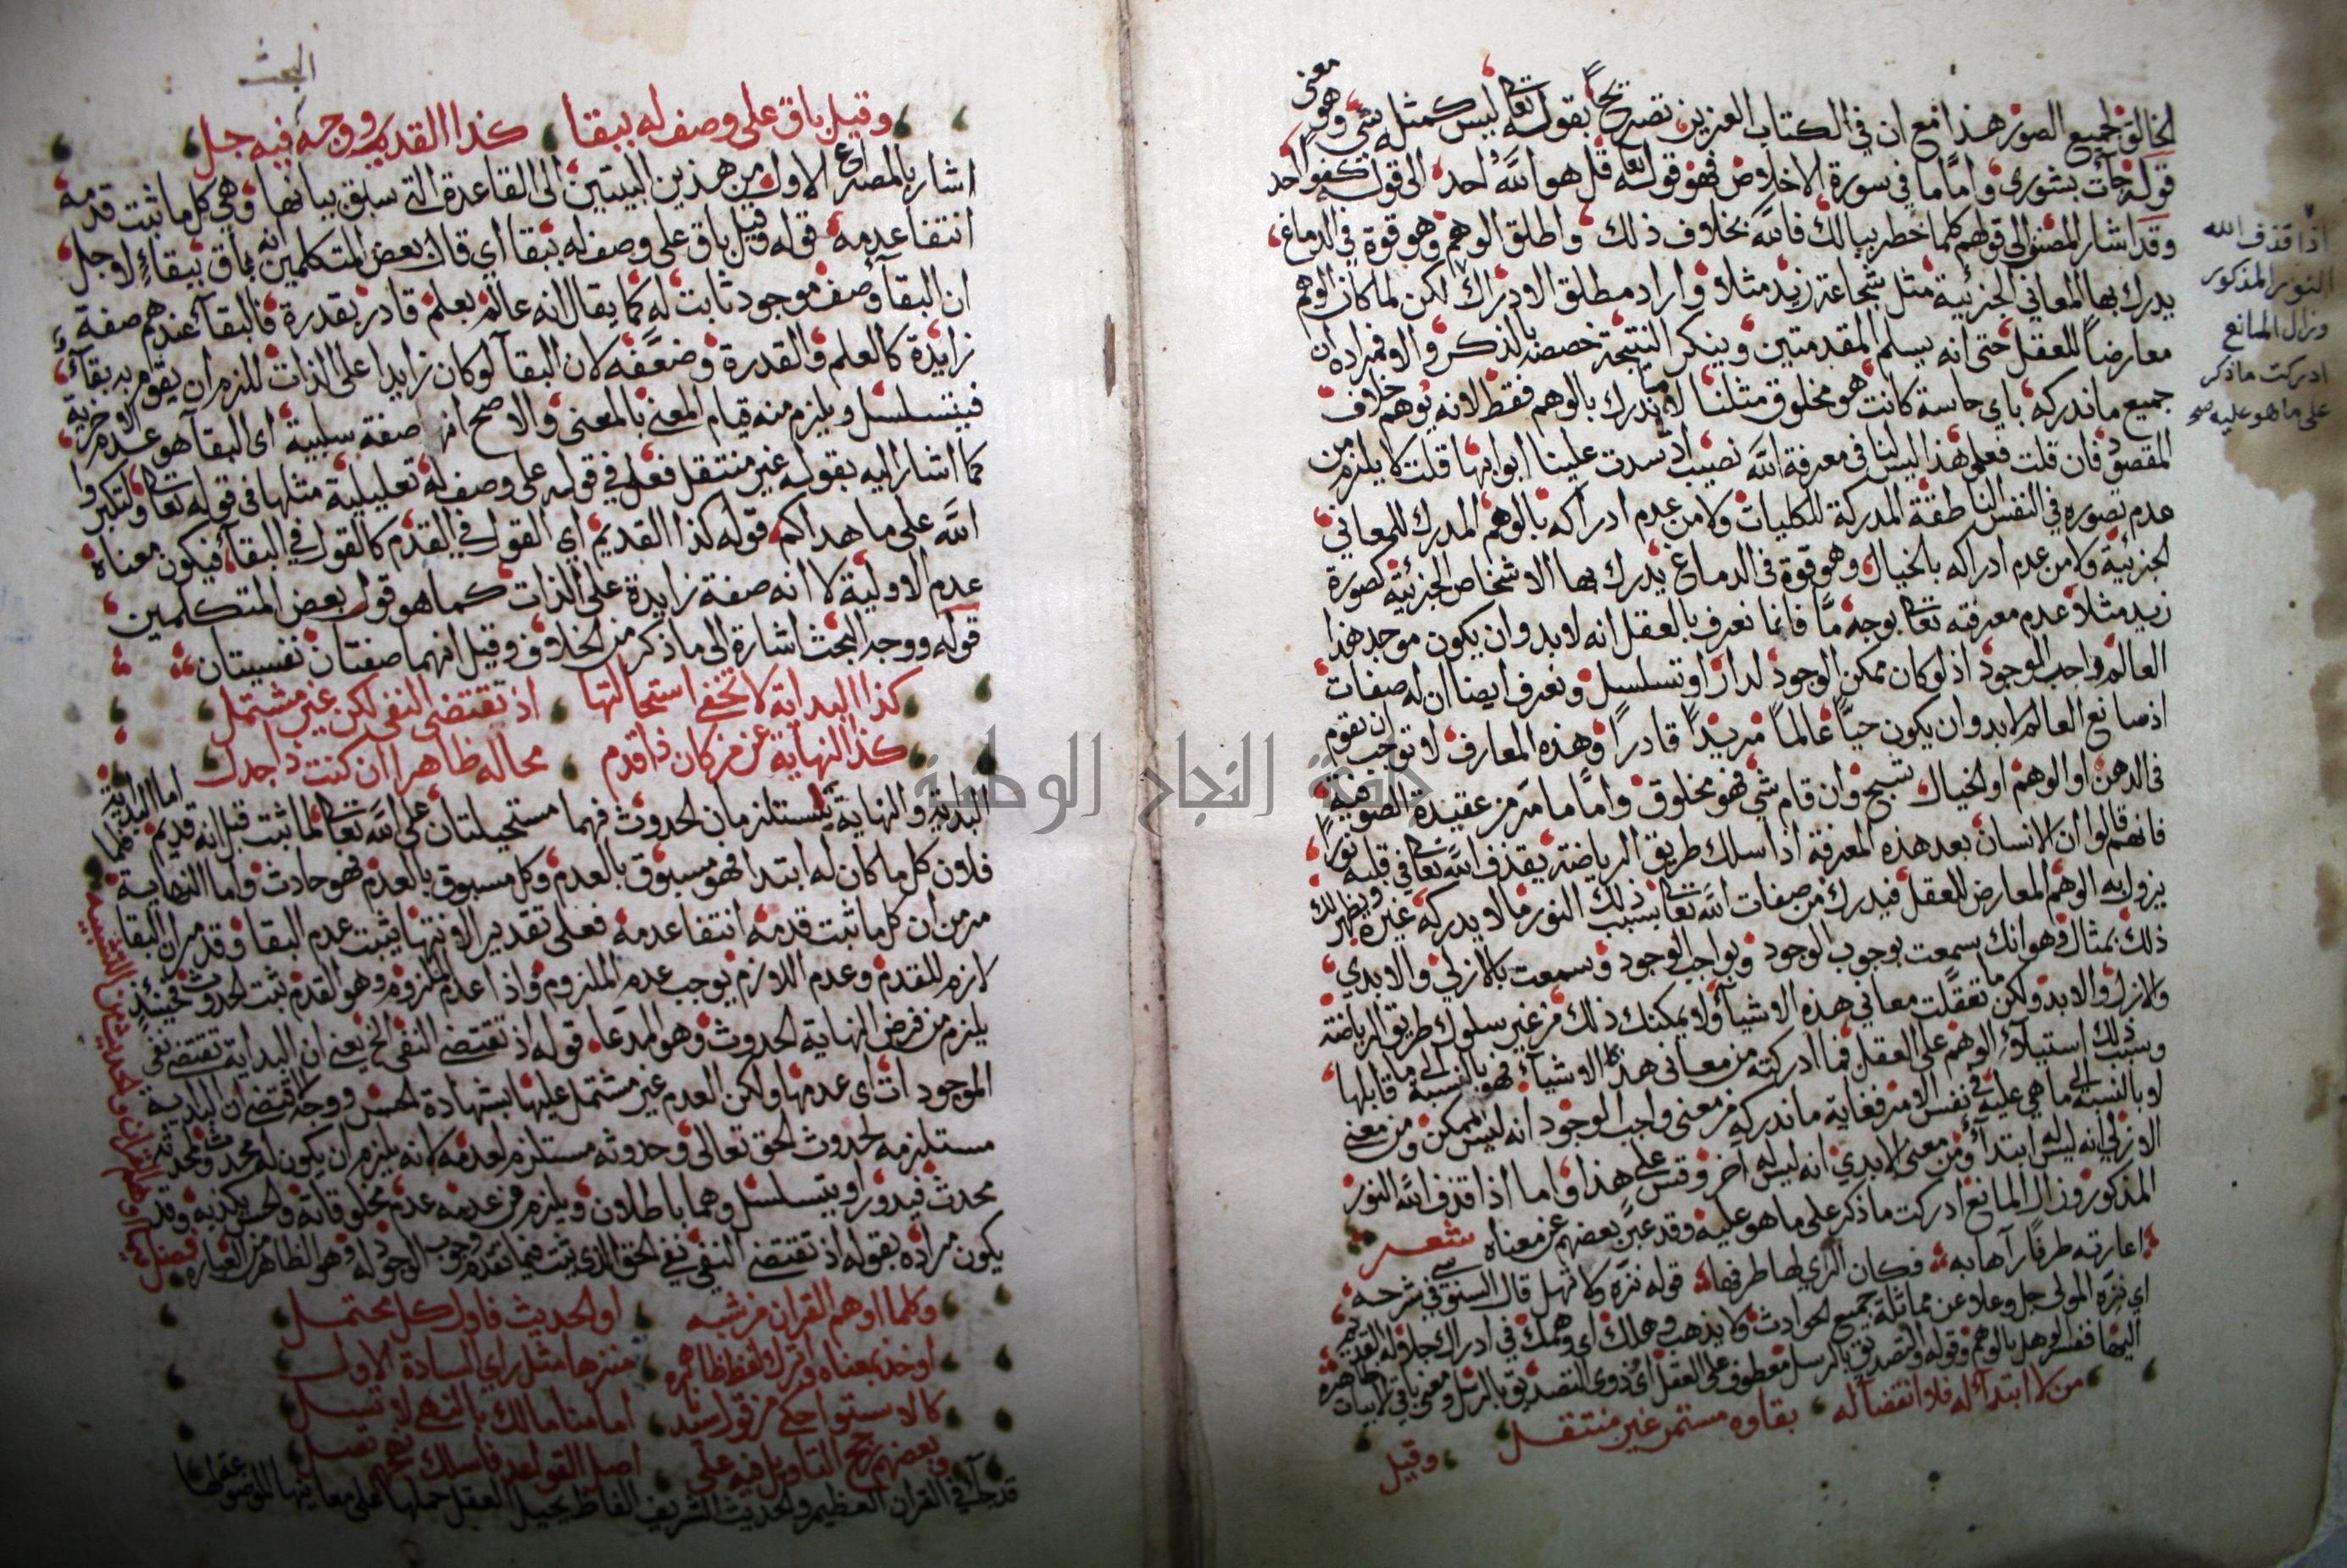 الخالق لجميع الصور هذا مع ان في الكتاب العزيز تصريحا بقوله تعالى ليس كمثله شي وهو معنى
قوله جأت بشورى واما ما في سورة الاخلاص فهو قوله تعالى قل هو الله احد الى قوله كفوا احد
وقد اشار المصنف الى قولهم كلما خطر ببالك فالله بخلاف ذلك واطلق الوهم وهو قوة في الدماغ
يدرك بها المعاني الجزئية مثل شجاعة زيد مثلا واراد مطلق الادراك لكن لما كان الوهم
معارضا للعقل حتى انه يسلم المقدمتين وينكر النتيجة خصصه بالذكر والا فمراده ان
جميع ما ندركه باي حاسة كانت هو مخلوق مثلنا لا ما ندرك بالوهم فقط لانه يوهم خلاف
المقصود فان قلت فعلى هذا ليس لنا في معرفة الله نصيب اذ سدت علينا ابوابها قلت لا يلزم من
عدم تصوره في النفس الناطقة المدركة للكليات ولا من عدم ادراكه بالوهم المدرك للمعاني
الجزئية ولا من عدم ادراكه بالخيال وهو قوة في الدماغ يدرك بها الاشخاص الجزئية كصورة
زيد مثلا عدم معرفته تعالى بوجه ما فانما نعرف بالعقل انه لا بد وان يكون موجد هذا
العالم واجب الوجود اذ لو كان ممكن الوجود لدار او تسلسل ونعرف ايضا ان له صفات
اذ صانع العالم لا بد وان يكون حيا عالما مريدا قادرا وهذه المعارف لا توجب ان يقوم
في الذهن او الوهم او الخيال شبح وان قام شي فهو مخلوق واما ما مر من عقيدة الصوفية
فانهم قالوا ان الانسان بعد هذه المعرفة اذا سلك طريق الرياضة يقذف الله تعالى في قلبه نورا
يزول به الوهم المعارض للعقل فيدرك من صفات الله تعالى بسبب ذلك النور ما لا يدركه غيره ويظهر لك
ذلك بمثال وهو انك سمعت بوجوب الوجود وبواجب الوجود وسمعت بالازلي والابدي
والازل والابد ولكن ما تعقلت معاني هذه الاشيآ ولا يمكنك ذلك من غير سلوك طريق الرياضة
وسبب ذلك استيلاء الوهم على العقل فما ادركته من معاني هذه الاشيآ فهو بالنسبة الى ما قابلها
لا بالنسبة الى ما هي عليه في نفس الامر فغاية ما ندركه من معنى واجب الوجود انه ليس الممكن ومن معنى
الازلي انه ليس له ابتدآ ومن معنى الابدي انه ليس له آخر وقس على هذا واما اذا قذف الله النور
المذكور وزال المانع ادركت ما ذكر على ما هو عليه وقد عبر بعضهم عن معناه شعر
اعارته طرفا رآها به فكان الرآي لها طرفها قوله نزه ولا تهل قال السنوسي في شرحه
اي نزه المولى جل وعلا عن مماثلة جميع الحوادث ولا يذهب وهلك اي وهمك في ادراك جلاله القديم
اليها ففسر الوهل بالوهم وقوله والتصديق بالرسل معطوف على العقل اي ذوي التصديق بالرسل ومعنى باقي الابيات ظاهره
من لا ابتدآ له فلا انقضآ له بقاوه مستمر غير منتقل
وقيل
اذا قذف الله
النور المذكور
وزال المانع
ادركت ما ذكر
على ما هو عليه صح
البحث
وقيل باق على وصف له ببقا كذا القديم ووجه فيه جل
اشار بالمصراع الاول من هذين البيتين الى القاعدة التي سبق بيانها وهي كل ما ثبت قدمه
انتفا عدمه قوله وقيل باق على وصف له ببقا اي قال بعض المتكلمين انه باق ببقاء لاجل
ان البقآ وصف موجود ثابت له كما يقال انه عالم بعلم قادر بقدرة فالبقآ عندهم صفة
زايدة كالعلم والقدرة وضعفه لان البقآ لو كان زايدا على الذات للزم ان يقوم به بقآ
فيتسلسل ويلزم منه قيام المعنى بالمعنى والاصح انها صفة سلبية اى البقآ هو عدم الاخرية
كما اشار اليه بقوله غير منتقل فعلى في قوله على وصف له تعليلية مثلها في قوله تعالى ولتكبروا
الله على ما هداكم قوله كذا القديم اي القول في القدم كالقول في البقآ فيكون معناه
عدم الاولية لا انه صفة زايدة على الذات كما هو قول بعض المتكلمين
قوله ووجد البحث اشارة الى ما ذكر من الخلاف وقيل انهما صفتان نفسيتان
كذا البداية لا تخفى استحالتها اذ تقتضى النفى لكن غير مشتمل
كذا النهاية عن من كان ذا قدم محالة ظاهرا ان كنت ذا جدل
البداية والنهاية يستلزمان الحدوث فهما مستحيلتان على الله تعالى لما ثبت قبل انه قديم اما البداية
فلان كل ما كان له ابتدا فهو مسبوق بالعدم وكل مسبوق بالعدم فهو حادث واما النهاية فلما
مر من ان كل ما ثبت قدمه انتفا عدمه فعلى تقدير الانتها يثبت عدم البقا وقد مر ان البقا
لازم للقدم وعدم اللازم يوجب عدم الملزوم واذا عدم الملزوم وهو القدم ثبت الحدوث فحينئذ
يلزم من فرض النهاية الحدوث وهو المدعا قوله اذ تقتضي النفي الخ يعني ان البداية تقتضي نفي
الموجودات اى عدمها ولكن العدم غير مشتمل عليها بشهادة الحس ووجه الاقتضى ان البداية
مستلزمة لحدوث الحق تعالى وحدوثه مستلزم لعدمه لانه يلزم ان يكون له محدث ولمحدثه
محدث فيدور او يتسلسل وهما باطلان ويلزم من عدمه عدم مخلوقاته والحس يكذبه وقد
يكون مراده بقوله اذ تقتضى النفي نفي الحق الذي ثبت فيما تقدم وجوب الوجود له وهو الظاهر من العبارة
فصل فيما اوهم القران والحديث من التشبيه
وكلما اوهم القران من شبه او الحديث فاول كل محتمل
او خذ بمعناه واترك لفظ ظاهره منزها مثل راي السادة الاول
كالاستوا حكي من قول سيدنا امامنا مالك بالنهي لا تسل
وبعضهم رجح التاويل فيه على اصل القواعد فاسلك نهجهم تصل
قد جآ في القران العظيم والحديث الشريف الفاظ يحيل العقل حملها على معانيها الموضوع لها
حقة النجاح الوطنية